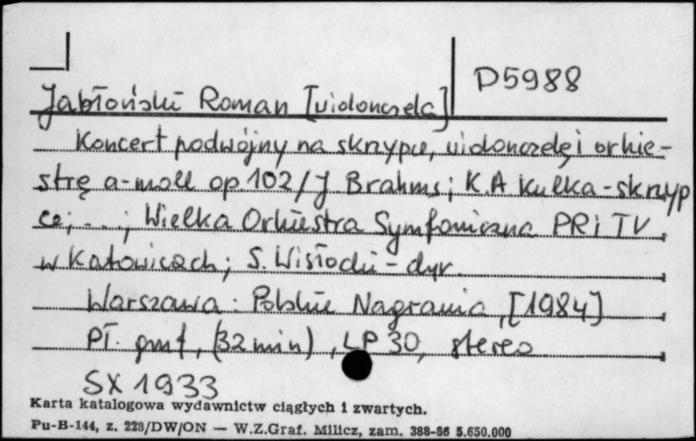 D5988
Jabłoński Roman [wiolonczela]
Koncert podwójny na skrzypce, wiolonczelę i orkie-
strę a-moll op 102/J Brahms; K.A Kulka - skrzyp
ce; ...; Wielka Orkiestra Symfoniczna PR i TV
w Katowicach; S. Wisłocki - dyr.
Warszawa: Polskie Nagrania, [1984]
Pł. gmf, (32 min), LP 30, stereo
SX 1933
Karta katalogowa wydawnictw ciągłych i zwartych.
Pu-B-144, z. 223/DW/ON — W.Z.Graf. Milicz, zam. 388-86 5.650.000